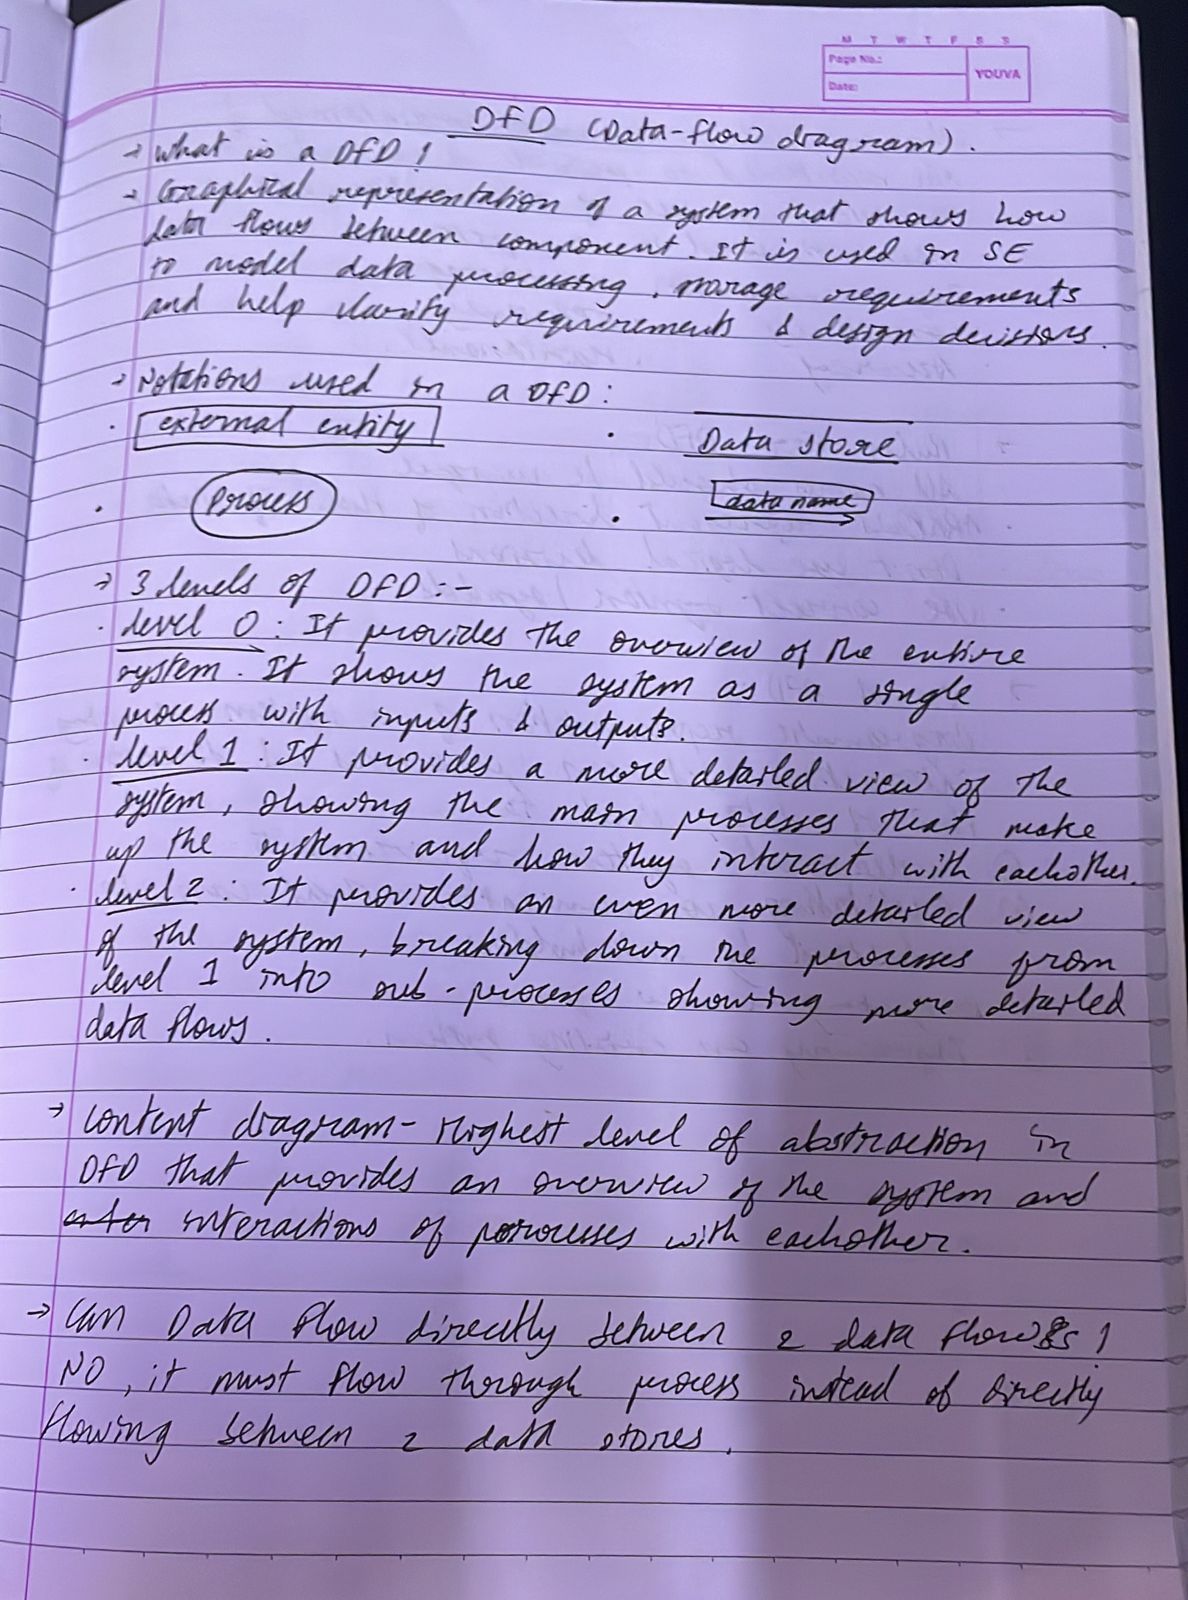 M T W T F S S
Page No.:
YOUVA
Date:
DFD (Data-flow diagram).
→ What is a DFD?
→ Graphical representation of a system that shows how
data flows between component. It is used in SE
to model data processing, manage requirements
and help clarify requirements & design decisions.
→ Notations used in a DFD:
· external entity
· Data store
· Process
· data name
→ 3 levels of DFD:-
· level 0: It provides the overview of the entire
system. It shows the system as a single
process with inputs & outputs.
· level 1: It provides a more detailed view of the
system, showing the main processes that make
up the system and how they interact with eachother.
· level 2: It provides an even more detailed view
of the system, breaking down the processes from
level 1 into sub-processes showing more detailed
data flows.
→ Content diagram- Highest level of abstraction in
DFD that provides an overview of the system and
interactions of processes with eachother.
→ Can Data flow directly between 2 data flows?
NO, it must flow through process instead of directly
flowing between 2 data stores.